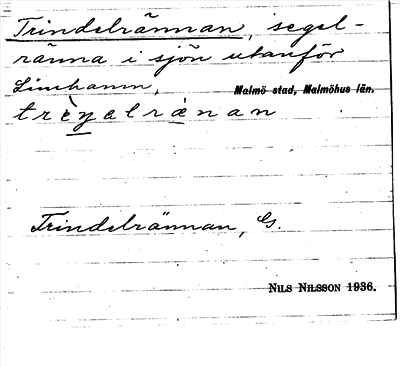 Trindelrännan, segel-
ränna i sjön utanför
Limhamn, Malmö stad, Malmöhus län.
trèyalrænan
Trindelrännan, G.
NILS NILSSON 1936.